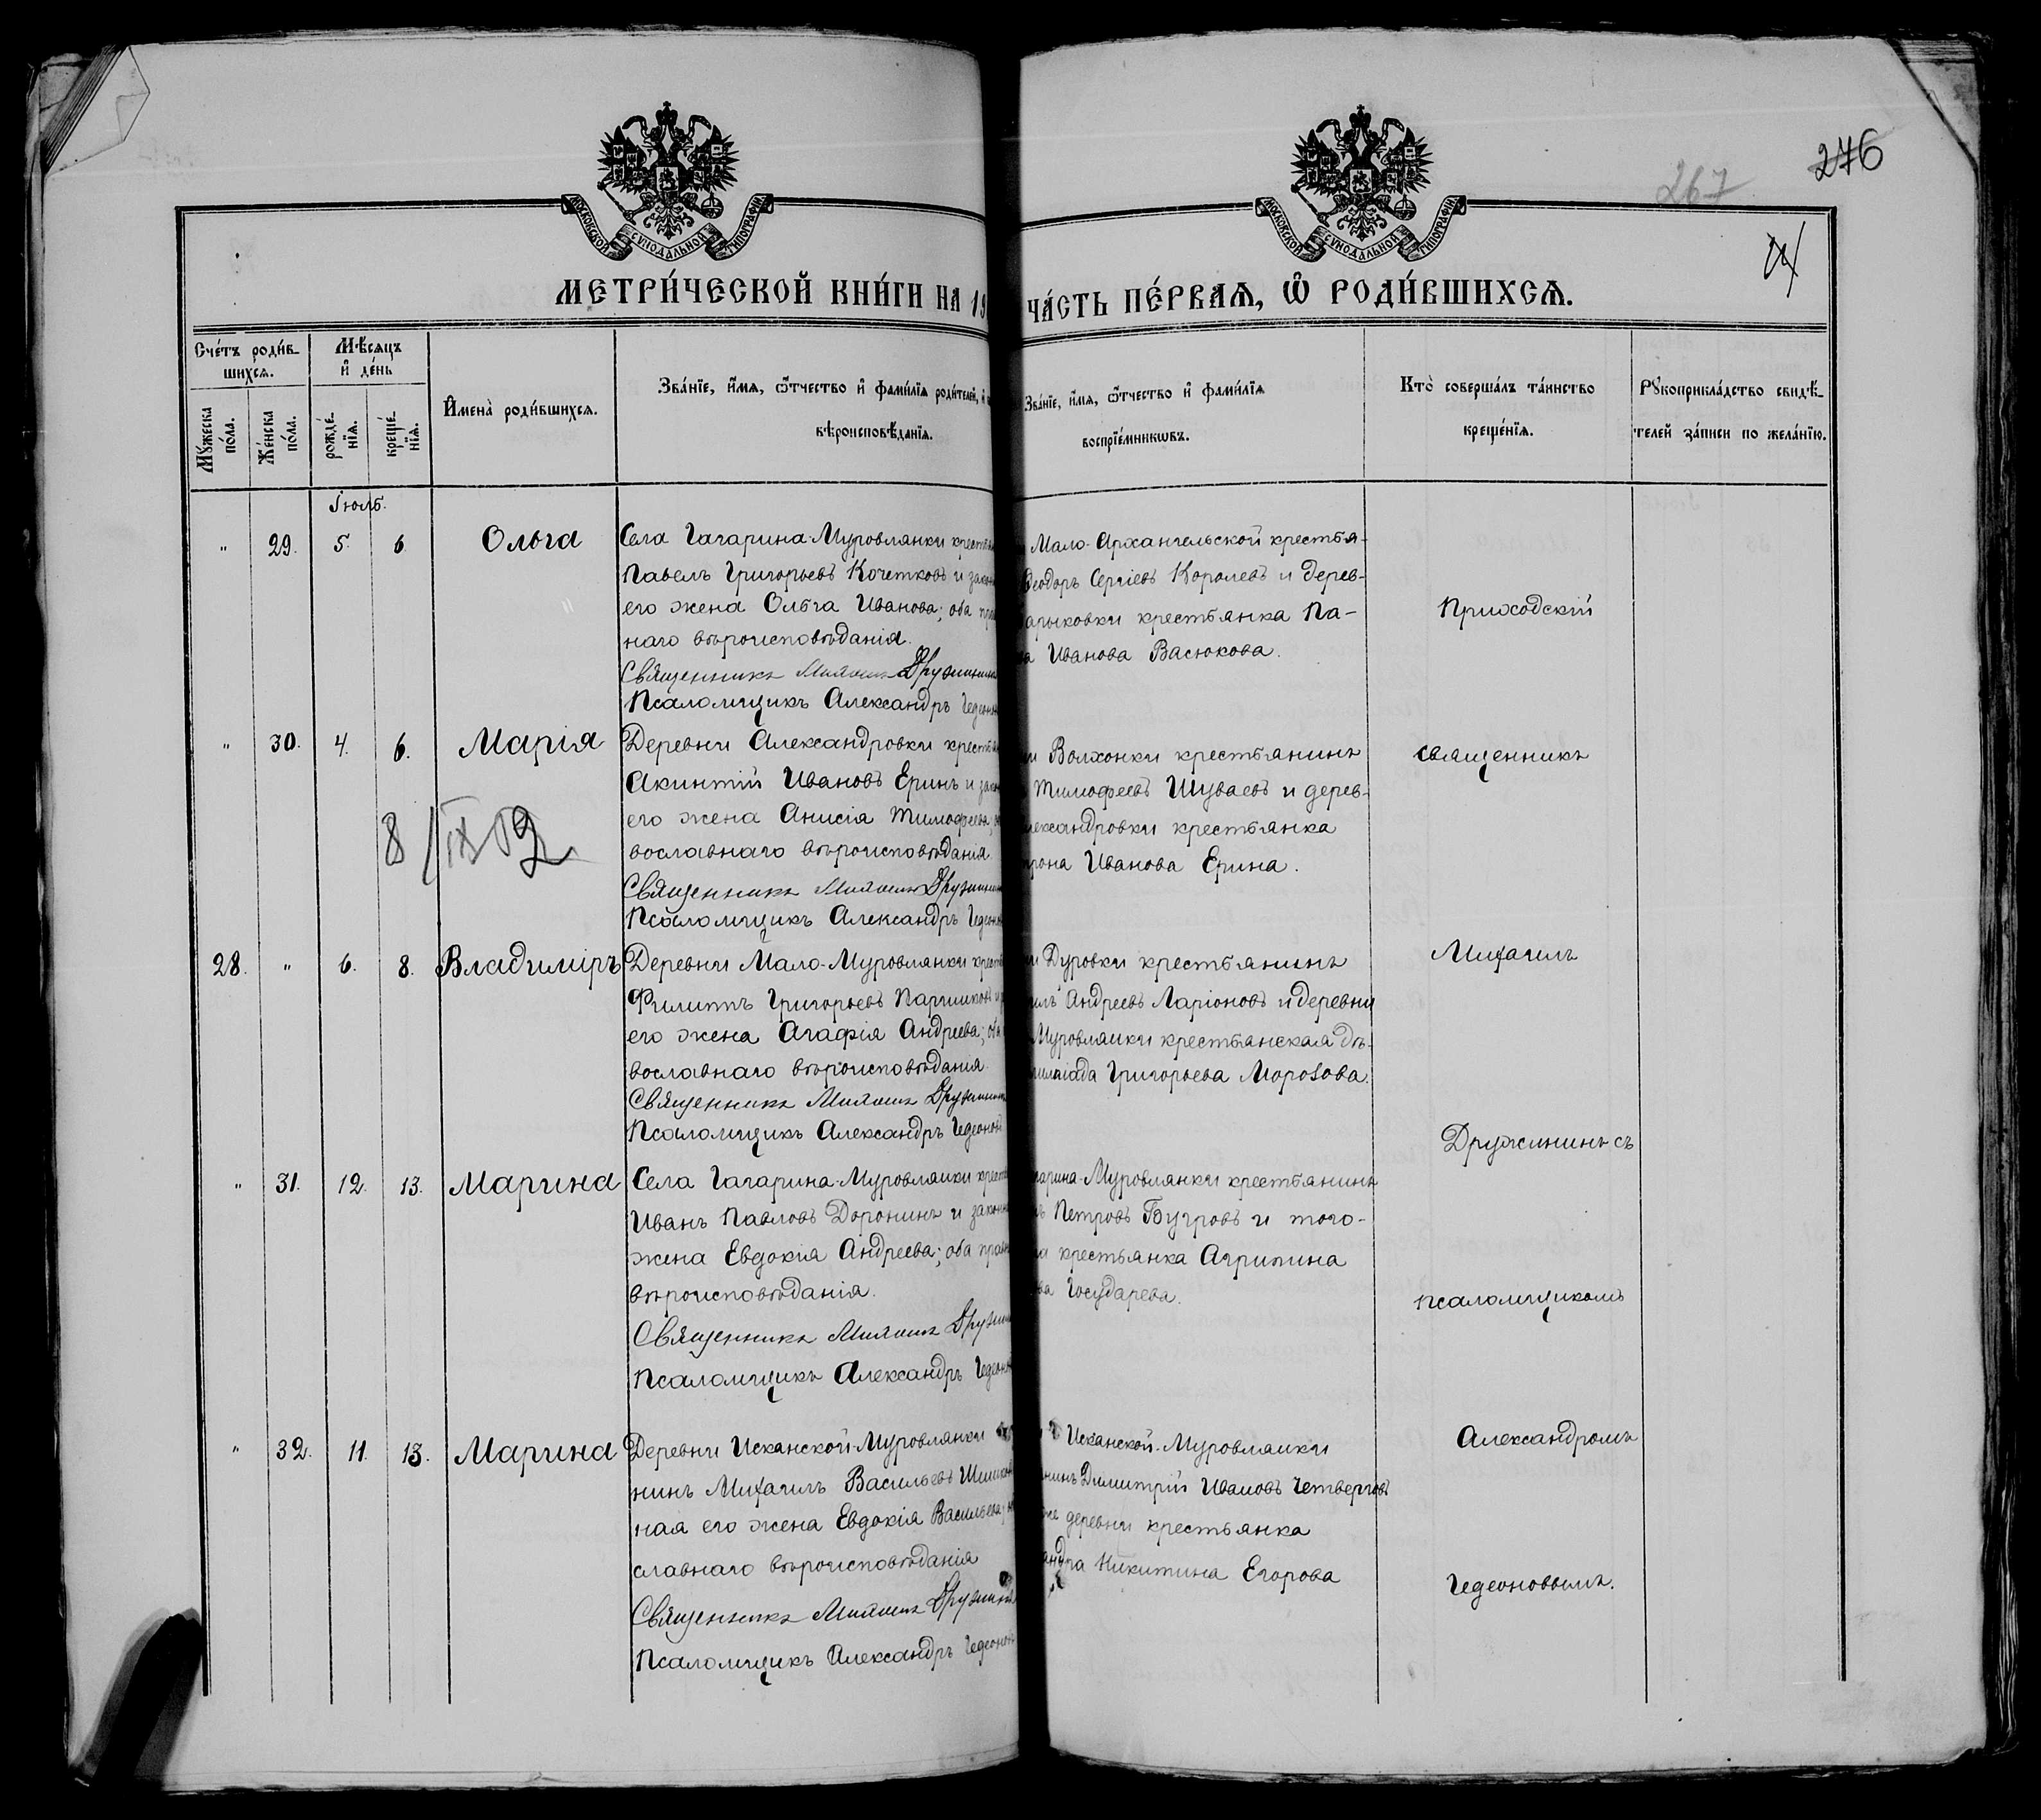 276
267
МОСКОВСКОЙ СѴНОДАЛЬНОЙ ТИПОГРАФІИ
МОСКОВСКОЙ СѴНОДАЛЬНОЙ ТИПОГРАФІИ
МЕТРИ́ЧЕСКОЙ КНИ́ГИ НА 19
ЧА́СТЬ ПЕ́РВАѦ, Ѡ҆ РОДИ́ВШИХСѦ.
Сче́тъ роди́в-
шихсѧ.
Мꙋ́жеска
по́ла.
Же́нска
по́ла.
Мѣ́сяцъ
и҆ де́нь
рожде́-
нїѧ.
креще́-
нїѧ.
И҆мена̀ роди́вшихсѧ.
Зва́нїе, и҆́мѧ, ѻ҆́тчество и҆ фами́лїѧ роди́телей, и҆
вѣроисповѣ́данїѧ.
Зва́нїе, и҆́мѧ, ѻ҆́тчество и҆ фами́лїѧ
воспрїе́мникѡвъ.
Кто̀ соверша́лъ та́инство
креще́нїѧ.
Рꙋкоприкла́дство свидѣ́-
телей за́писи по жела́нїю.
Іюль.
" 29. 5. 6 Ольга
Села Гагарина-Муровлянки крестья
Павелъ Григорьевъ Кочетковъ и закон
его жена Ольга Иванова; оба пра
наго вѣроисповѣданія.
Священникъ Михаилъ Дружининъ
Псаломщикъ Александръ Гедеонов
Мало-Архангельской крестья-
Ѳеодоръ Сергіевъ Королевъ и дерев-
арыковки крестьянка Па-
ва Иванова Васюкова.
" 30. 4. 6. Марія
Деревни Александровки крестья
Акинтій Ивановъ Еринъ и зако
его жена Анисія Тимофеева;
вославнаго вѣроисповѣданія.
Священникъ Михаилъ Дружинин
Псаломщикъ Александръ Гедеонов
и Волхонки крестьянинъ
Тимофеевъ Шуваевъ и дерев-
лександровки крестьянка
рона Иванова Ерина.
28. " 6. 8. Владиміръ
Деревни Мало-Муровлянки крест
Филиппъ Григорьевъ Паршиковъ и
его жена Агафія Андреева; оба
вославнаго вѣроисповѣданія.
Священникъ Михаилъ Дружинин
Псаломщикъ Александръ Гедеонов
и Дуровки крестьянинъ
илъ Андреевъ Ларіоновъ и деревни
Муровлянки крестьянская дѣ-
елагіада Григорьева Морозова.
" 31. 12. 13. Марина
Села Гагарина-Муровлянки крест
Иванъ Павловъ Доронинъ и законн
жена Евдокія Андреева; оба правос
вѣроисповѣданія.
Священникъ Михаилъ Дружи
Псаломщикъ Александръ Гедеонов
гарина-Муровлянки крестьянинъ
ъ Петровъ Бугровъ и того-
а крестьянка Агрипина
ва Государева.
" 32. 11. 13. Марина
Деревни Исканской-Муровлянки
нинъ Михаилъ Васильевъ Шишков
ная его жена Евдокія Васильева;
славнаго вѣроисповѣданія
Священникъ Михаилъ Дружинин
Псаломщикъ Александръ Гедеонов
Исканской-Муровлянки
нинъ Димитрій Ивановъ Четверговъ
же деревни крестьянка
андра Никитина Егорова
Приходскій
священникъ
Михаилъ
Дружининъ съ
псаломщикомъ
Александромъ
Гедеоновымъ.